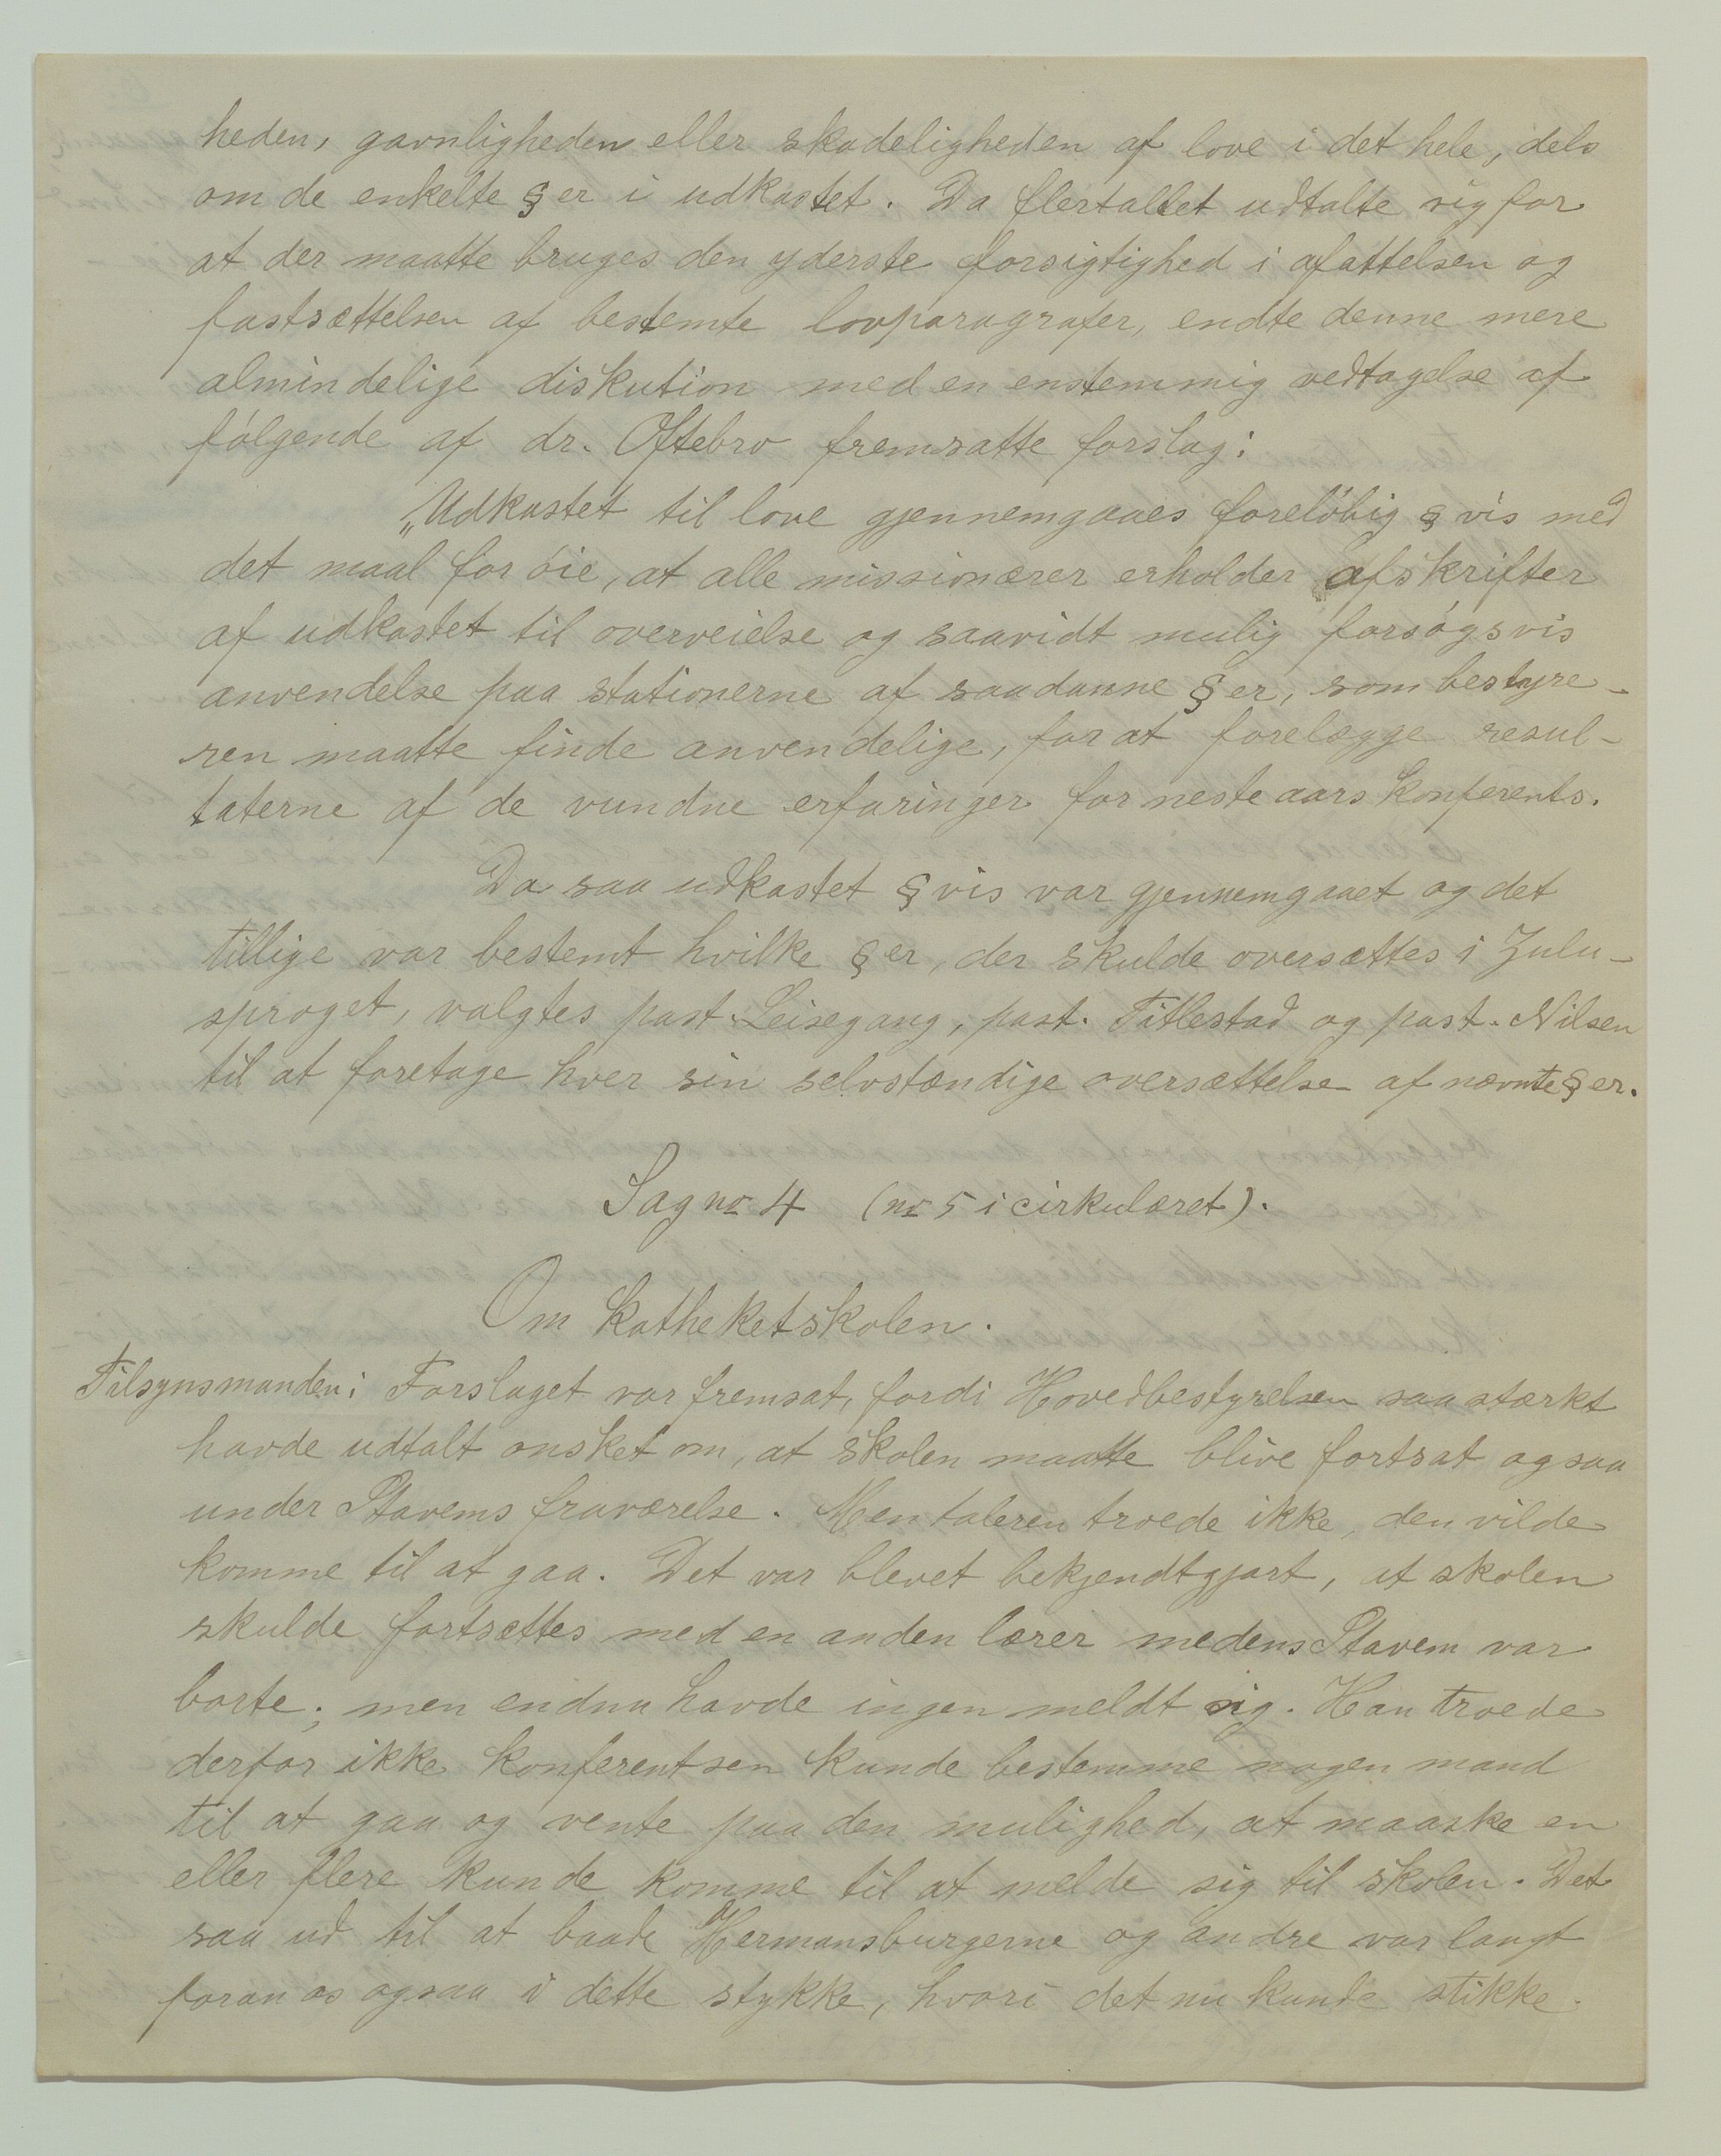 heden, gavnligheden eller skadeligheden af love i det hele, dels
om de enkelte §er i udkastet. Da flertallet udtalte sig for
at der maatte bruges den yderste forsigtighed i afattelsen og
fastsættelsen af bestemte lovparagrafer, endte denne mere
almindelige diskution med en enstemmig vedtagelse af
følgende af dr. Oftebro fremsatte forslag:
„Udkastet til love gjennemgaaes foreløbig § vis med
det maal for øie, at alle missionærer erholder afskrifter
af udkastet til overveielse og saavidt mulig forsøgsvis
anvendelse paa stationerne af saadanne §er, som bestyre-
ren maatte finde anvendelige, for at forelægge resul-
taterne af de vundne erfaringer for neste aars konferents.
Da saa udkastet § vis var gjennemgaaet og det
tillige var bestemt hvilke §er, der skulde oversættes i Zulu-
sproget, valgtes past. Leisegang, past. Titlestad og past. Nilsen
til at foretage hver sin selvstændige oversættelse af nævnte §er.
Sag no 4 (no 5 i cirkulæret).
Om Katheketskolen.
Tilsynsmanden: Forslaget var fremsat, fordi Hovedbestyrelsen saa stærkt
havde udtalt ønsket om, at skolen maatte blive fortsat ogsaa
under Stavems fraværelse. Men taleren troede ikke, den vilde
komme til at gaa. Det var blevet bekjendtgjort, at skolen
skulde fortsættes med en anden lærer medens Stavem var
borte; men endnu havde ingen meldt sig. Han troede
derfor ikke konferentsen kunde bestemme nogen mand
til at gaa og vente paa den mulighed, at maaske en
eller flere kunde komme til at melde sig til skolen. Det
saa ud til at baade Hermansburgerne og andre var langt
foran os ogsaa i dette stykke, hvori det nu kunde stikke.